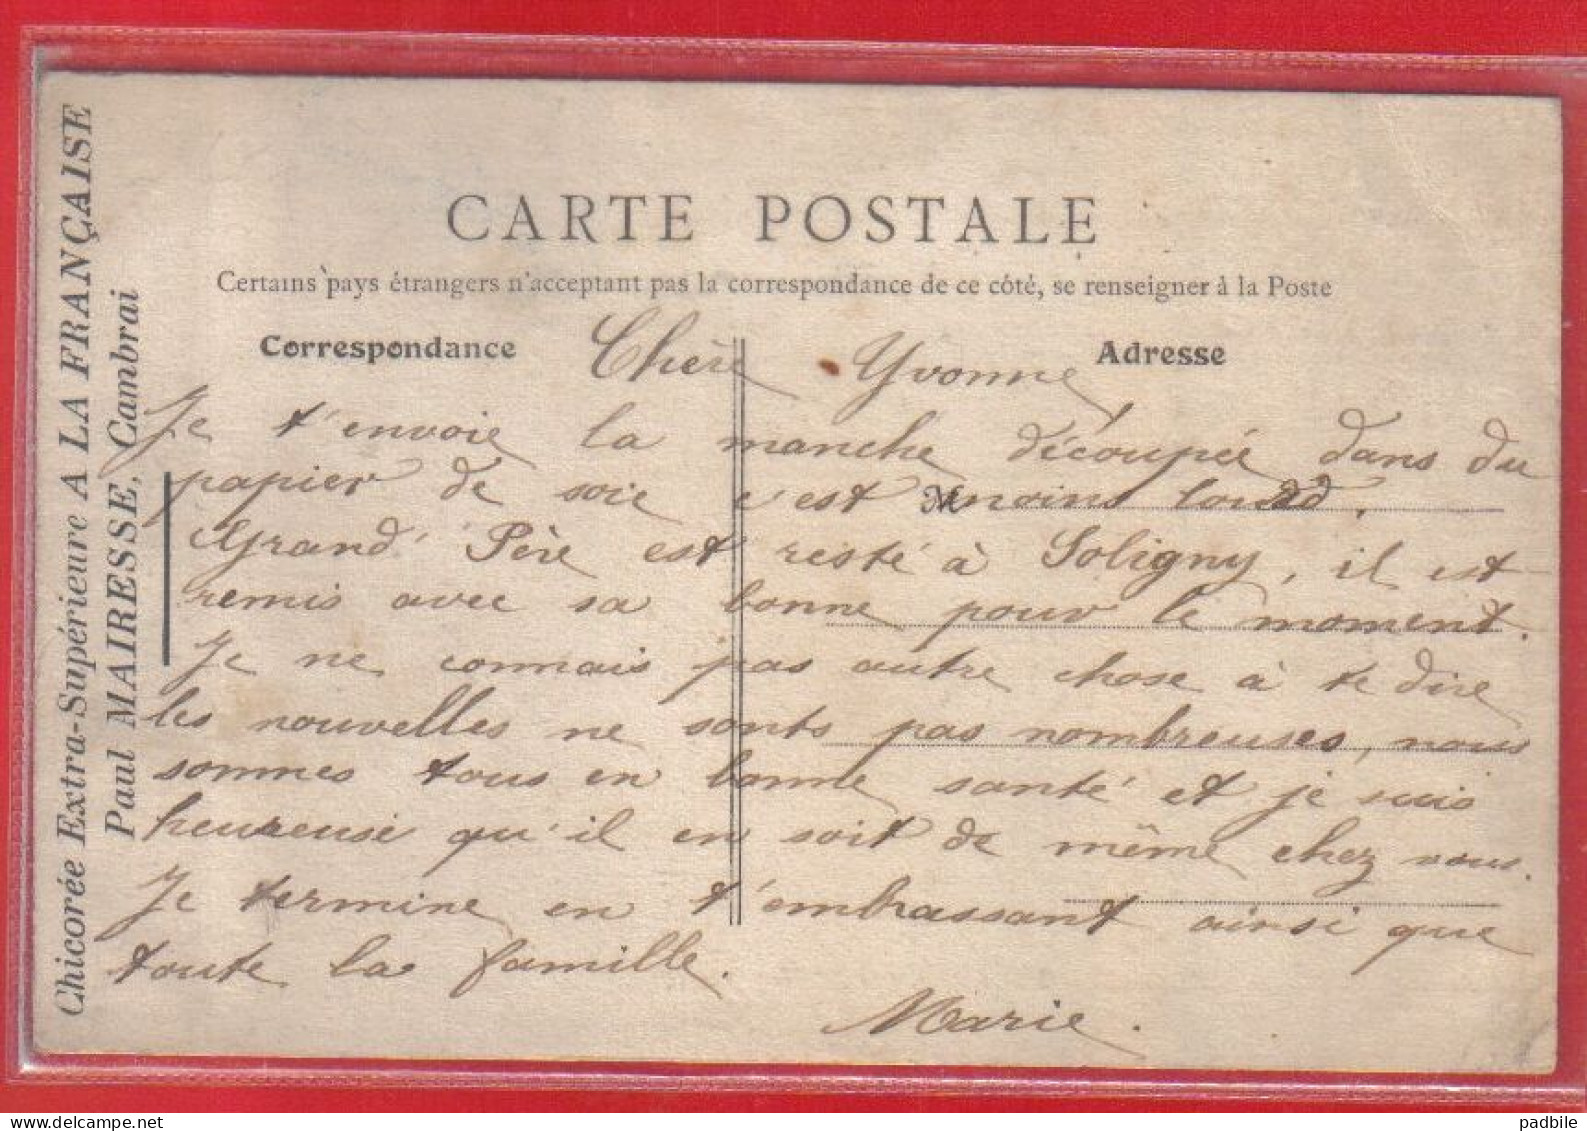 CARTE POSTALE
Certains pays étrangers n'acceptant pas la correspondance de ce côté, se renseigner à la Poste
Correspondance
Adresse
Chicorée Extra-Supérieure A LA FRANÇAISE
Paul MAIRESSE, Cambrai
Chère Yvonne
Je t'envoie la manche découpée dans du
papier de soie c'est moins lourd.
Grand' Père est resté à Soligny, il est
remis avec sa bonne pour le moment.
Je ne connais pas autre chose à te dire
les nouvelles ne sonts pas nombreuses, nous
sommes tous en bonne santé et je suis
heureuse qu'il en soit de même chez vous.
Je termine en t'embrassant ainsi que
toute la famille.
Marie.
padbile